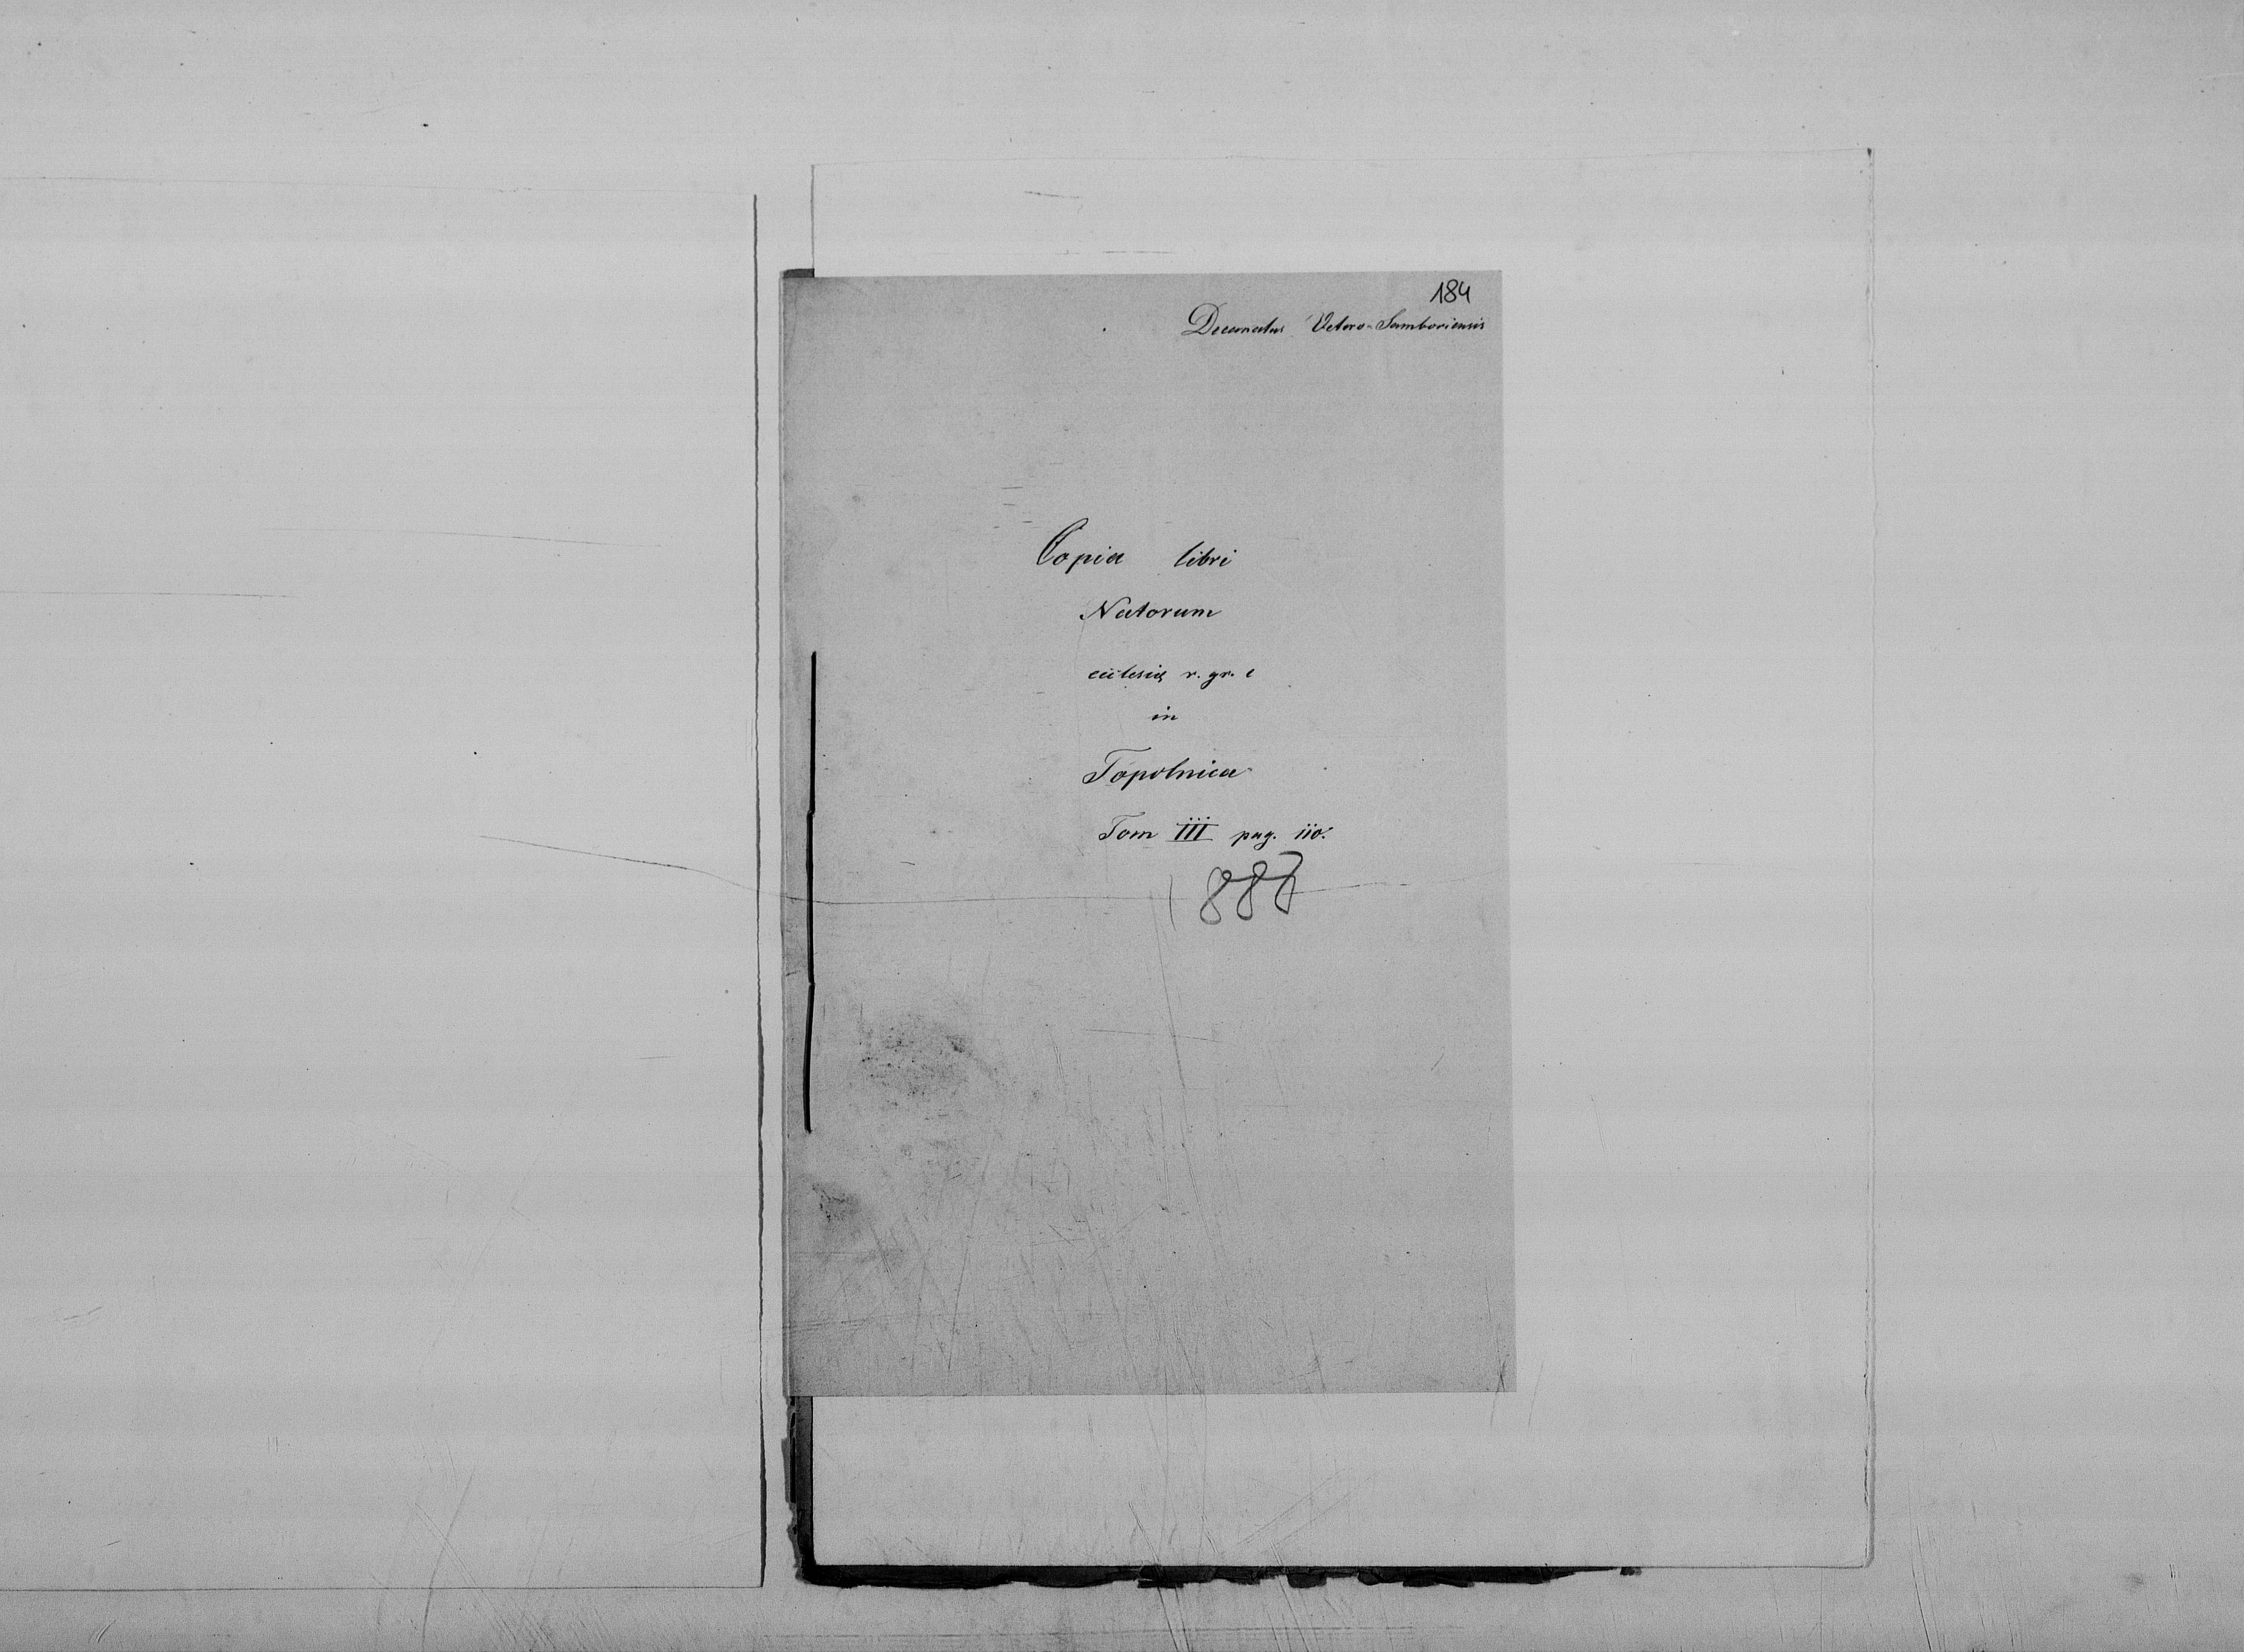 184
Decanatus Vetero-Samboriensis
Copia libri
Natorum
ecclesiæ r. gr. c
in
Topolnica
Tom III pag. 110.
188